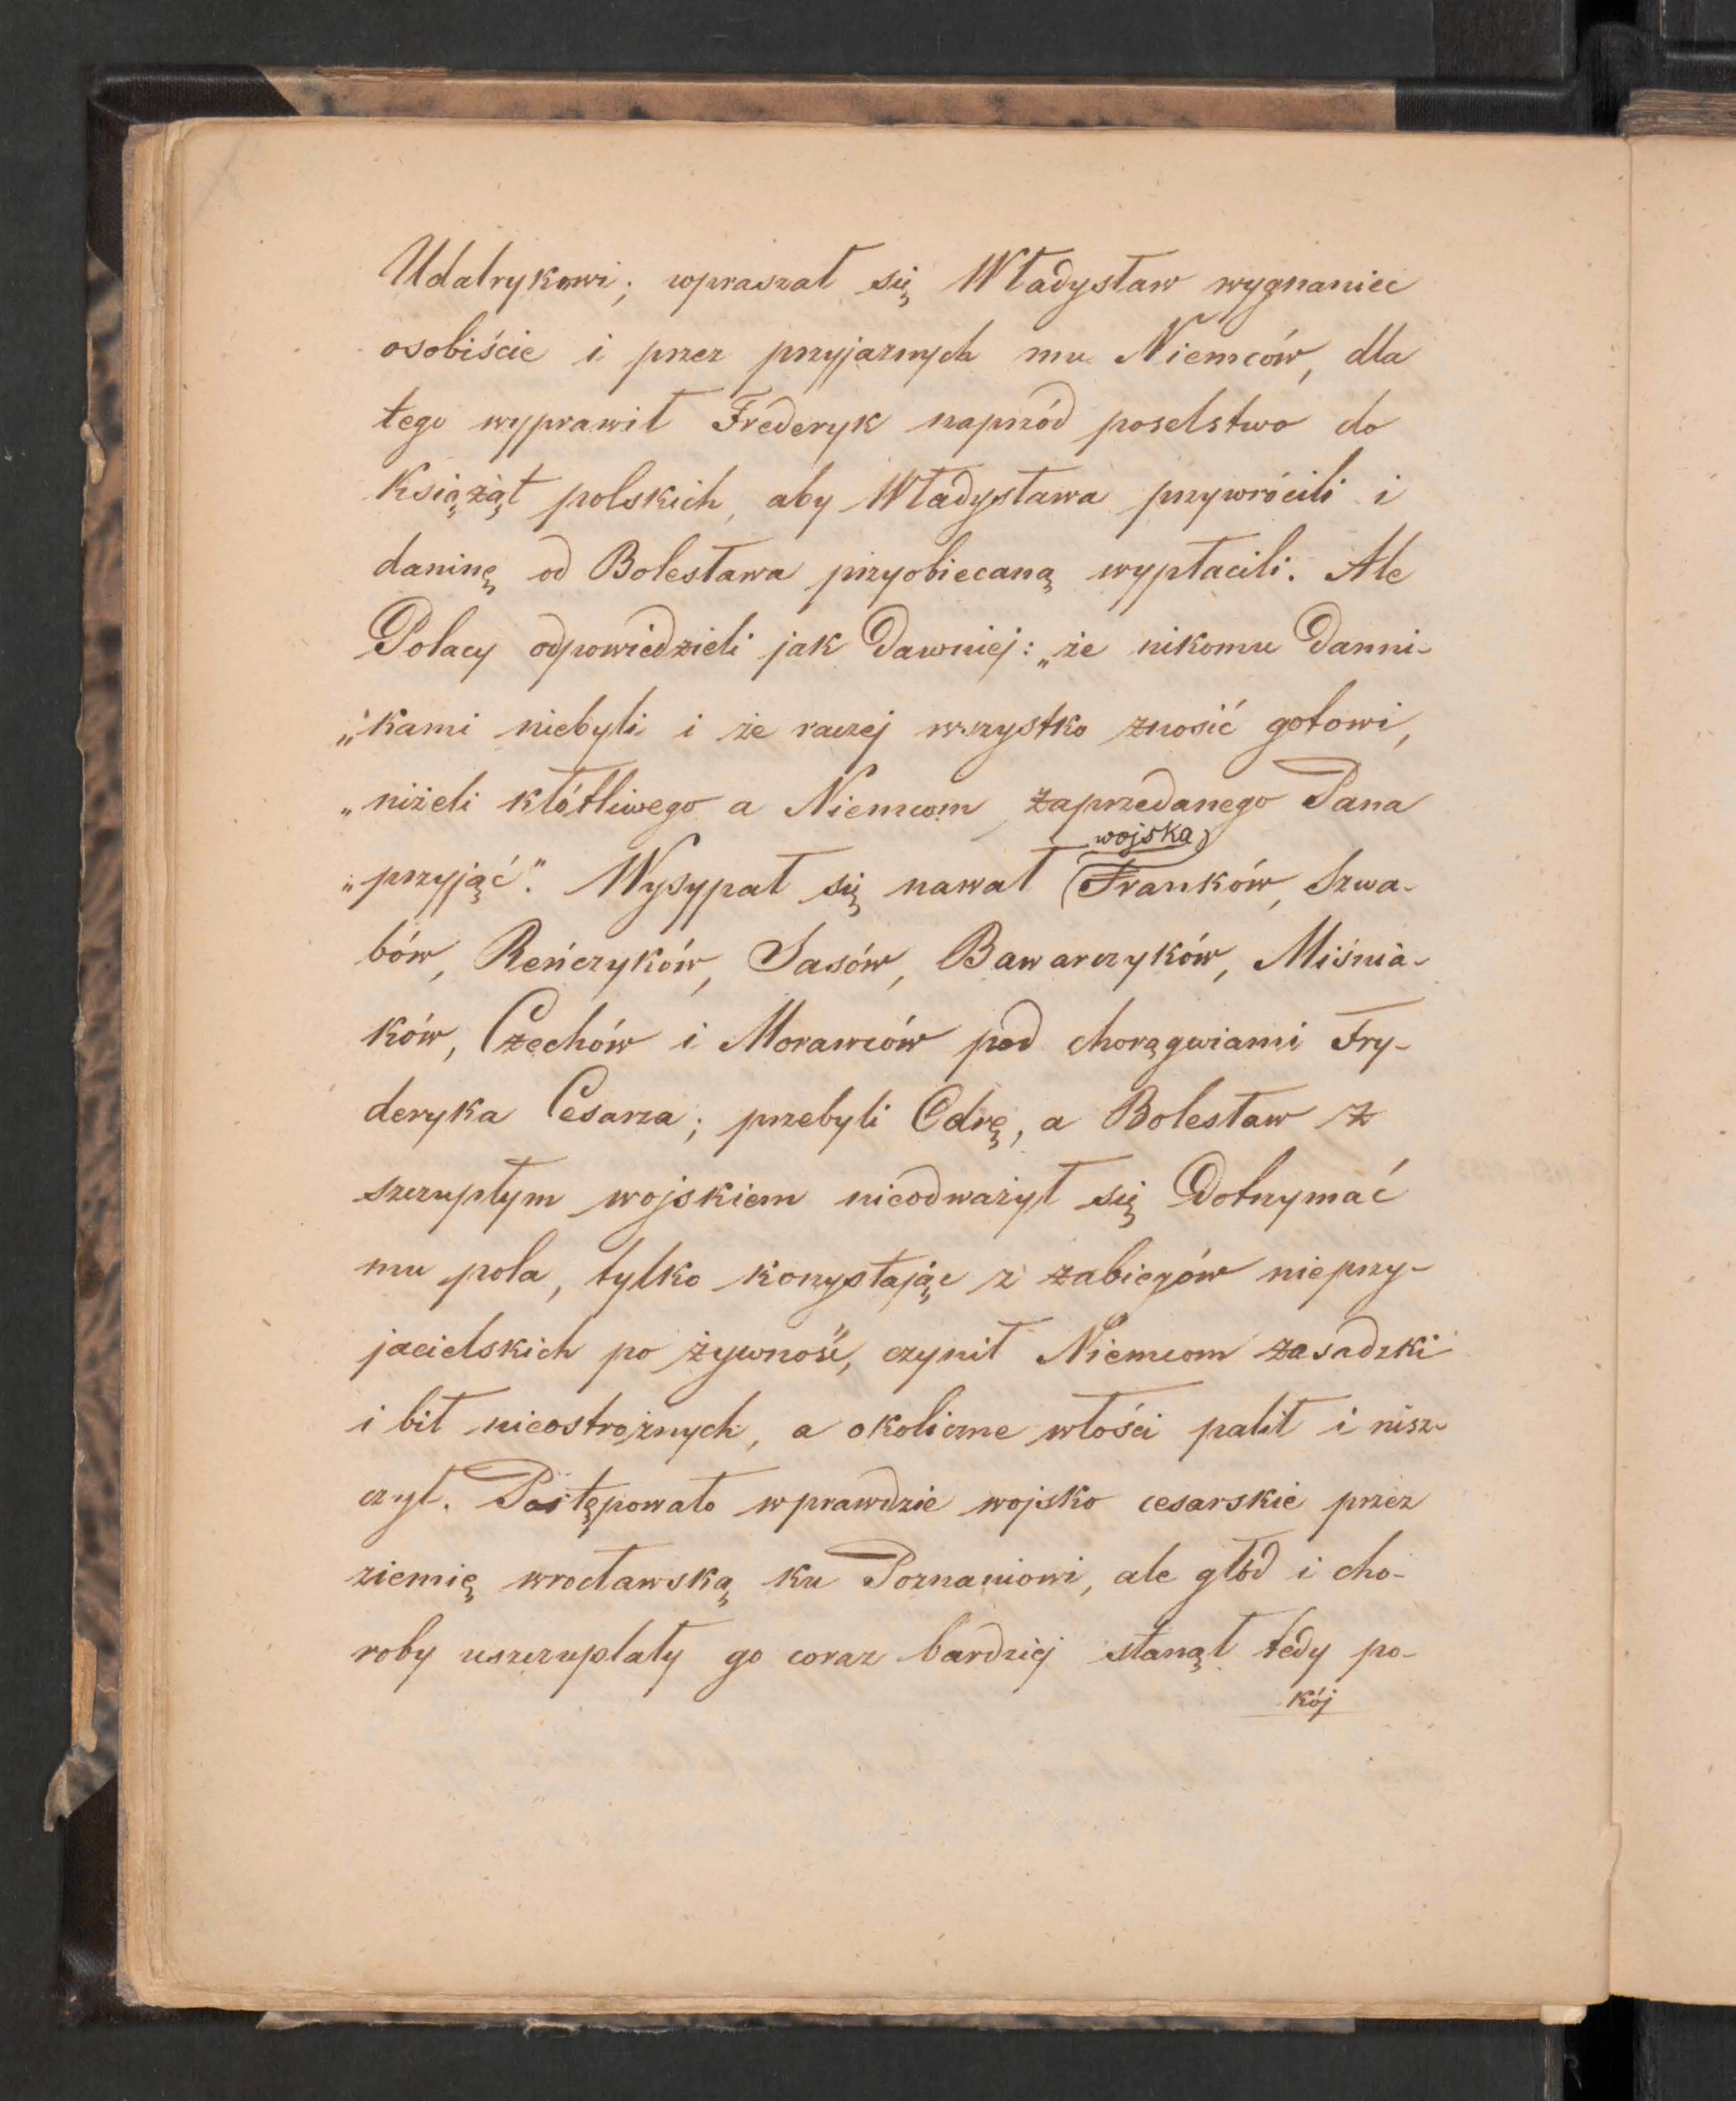 Udalrykowi; wpraszał się Władysław wygnaniec
osobiście i przez przyjaznych mu Niemców, dla
tego wyprawił Frederyk naprzód poselstwo do
książąt polskich, aby Władysława przywrócili i
daninę od Bolesława przyobiecaną wypłacili. Ale
Polacy odpowiedzieli jak dawniej: „że nikomu danni-
„kami niebyli i że raczej wszystko znosić gotowi,
„niżeli kłótliwego a Niemcom zaprzedanego Pana
wojska
„przyjąć". Wysypał się nawał Franków, Szwa-
bów, Reńczyków, Sasów, Bawarczyków, Miśnia-
ków, Czechów i Morawców pod chorągwiami Fry-
deryka Cesarza; przebyli Odrę, a Bolesław z
szczupłym wojskiem nieodważył się dotrzymać
mu pola, tylko korzystając z zabiegów nieprzy-
jacielskich po żywność, czynił Niemcom zasadzki
i bił nieostrożnych, a okoliczne włości palił i nisz-
czył. Postępowało wprawdzie wojsko cesarskie przez
ziemię wrocławską ku Poznaniowi, ale głód i cho-
roby uszczuplały go coraz bardziej stanął tedy po-
kój